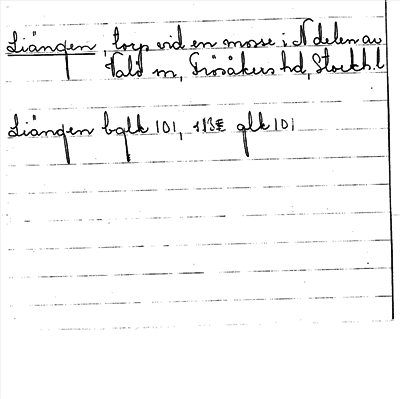 Liängen, torp vid en mosse i N delen av
Vald m, Frösåkers hd, Stockh.l
Liängen bglk 101, 113E glk 101